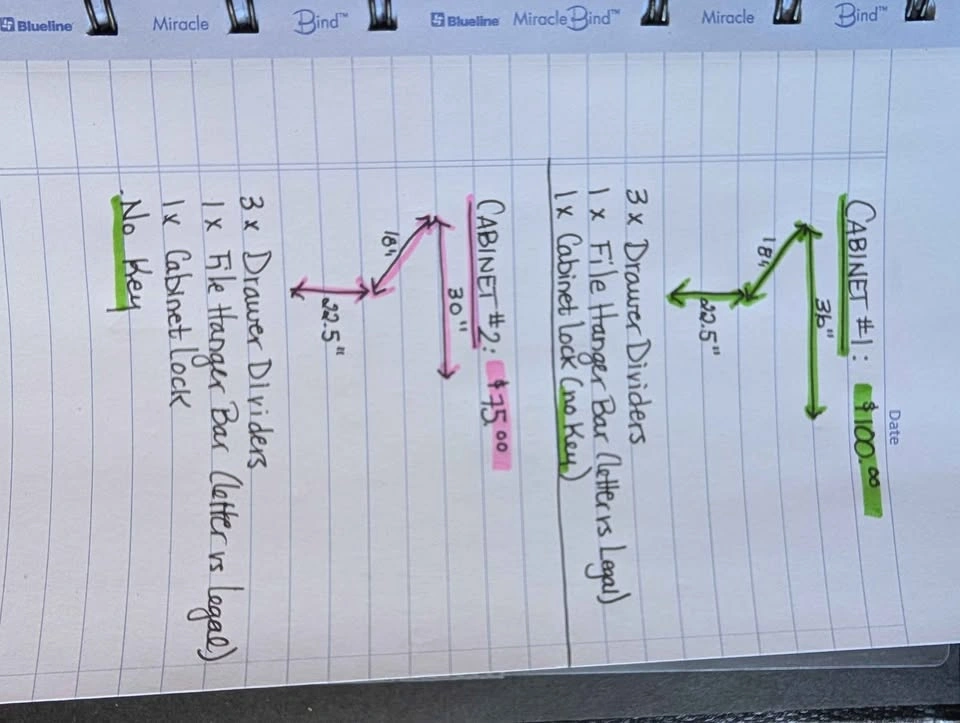 Blueline Miracle Bind™ Blueline MiracleBind™ Miracle Bind™
Date
CABINET #1: $100.00
36"
18"
22.5"
3 x Drawer Dividers
1 x File Hanger Bar (letter vs Legal)
1 x Cabinet lock (no Key)
CABINET #2: $75.00
30"
18"
22.5"
3 x Drawer Dividers
1 x File Hanger Bar (letter vs Legal)
1 x Cabinet Lock
No Key